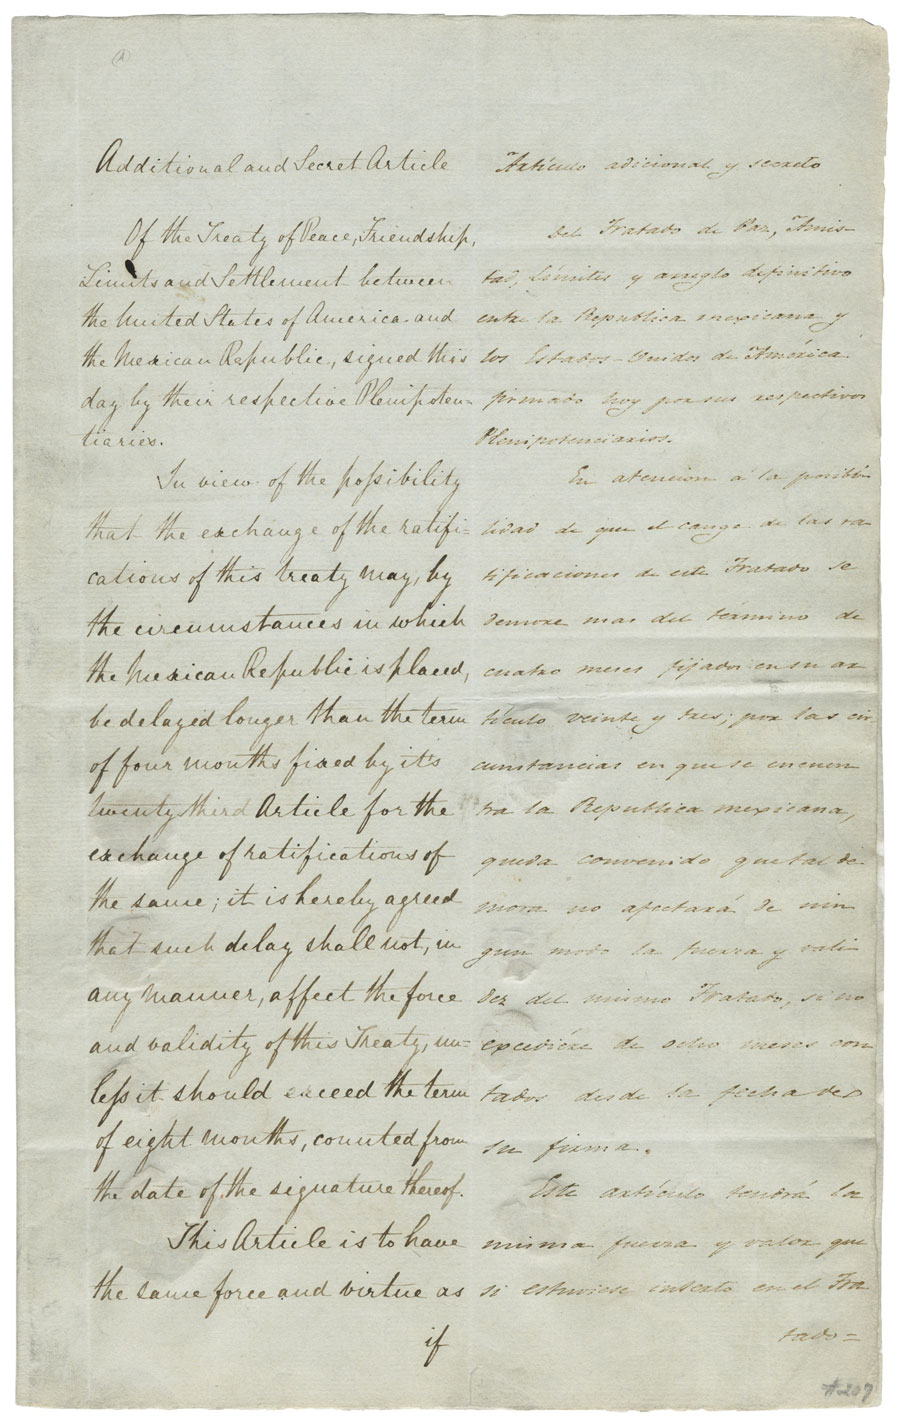 Additional and Secret Article
Of the Treaty of Peace, Friendship,
Limits and Settlement between
the United States of America and
the Mexican Republic, signed this
day by their respective Plenipoten=
tiaries.
In view of the possibility
that the exchange of the ratifi=
cations of this treaty may, by
the circumstances in which
the Mexican Republic is placed,
be delayed longer than the term
of four months fixed by it's
twenty third Article for the
exchange of ratifications of
the same; it is hereby agreed
that such delay shall not, in
any manner, affect the force
and validity of this Treaty, un=
less it should exceed the term
of eight months, counted from
the date of the signature thereof.
This Article is to have
the same force and virtue as
if
Artículo adicional y secreto
Del Tratado de Paz, Amis-
tad, Límites y arreglo definitivo
entre la Republica mexicana y
los Estados-Unidos de América
firmado hoy por sus respectivos
Plenipotenciarios.
En atencion á la posibi-
lidad de que el cange de las ra
tificaciones de este Tratado se
demore mas del término de
cuatro meses fijados en su ar
tículo veinte y tres; por las cir
cunstancias en que se encuen
tra la Republica mexicana,
queda convenido que tal de-
mora no afectará de nin
gun modo la fuerza y vali-
dez del mismo Tratado, si no
excediere de ocho meses con
tados desde la fecha de
su firma.
Este artículo tendrá la
misma fuerza y valor que
si estuviese inserto en el Tra
tado=